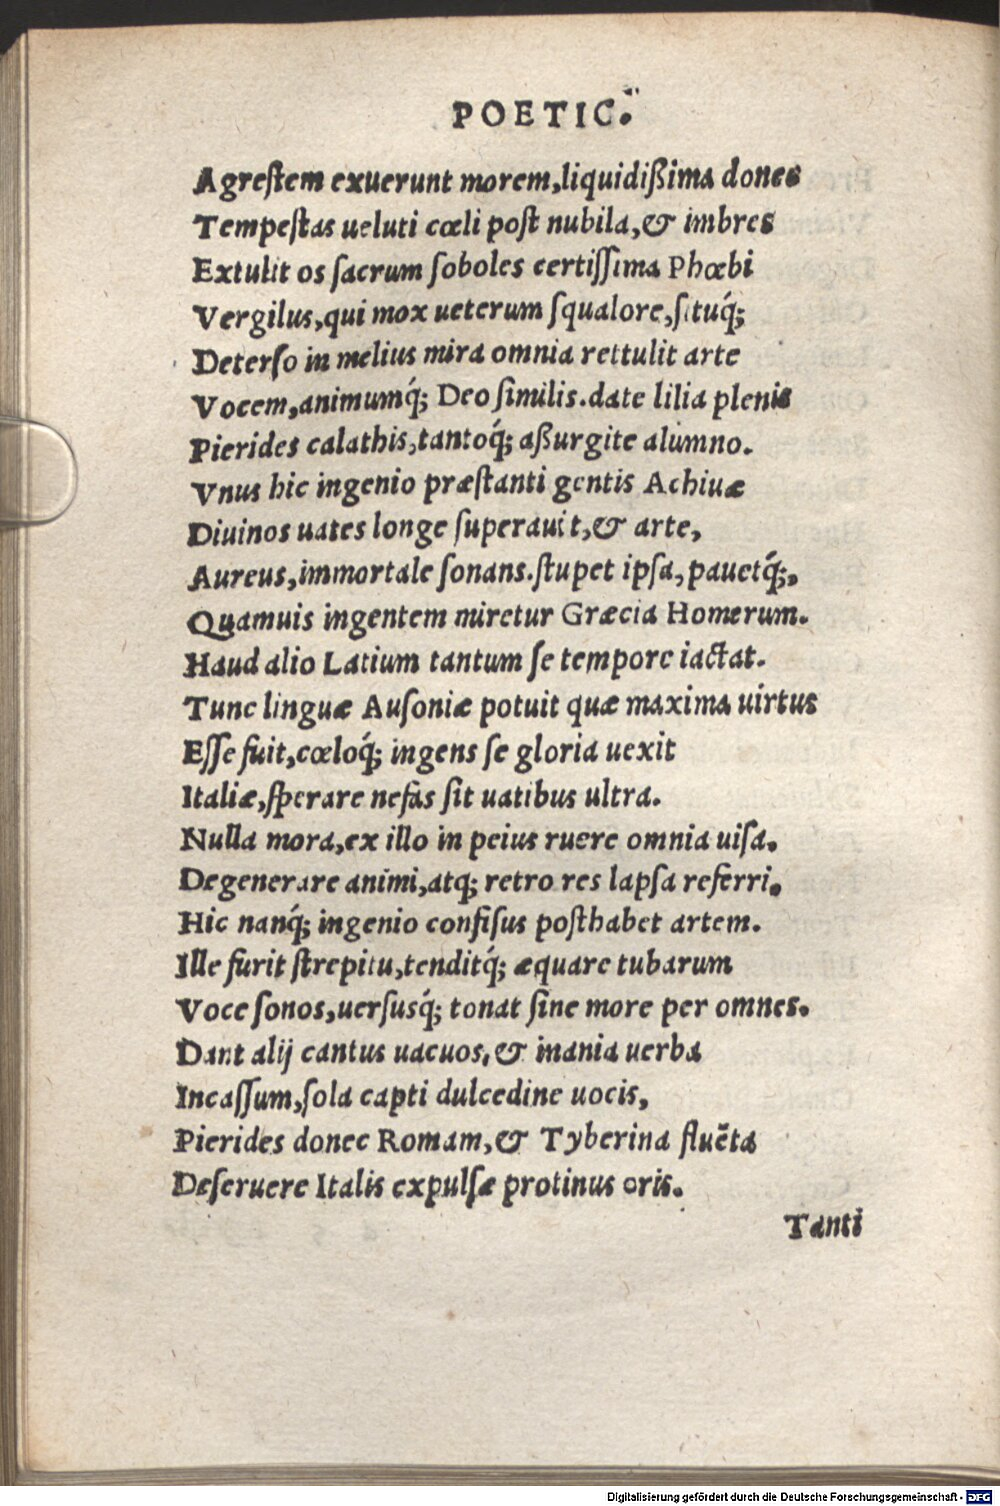 POETIC.
Agreſtem exuerunt morem,liquidißima donec
Tempeſtas ueluti cœli poſt nubila,& imbres
Extulit os ſacrum ſoboles certiſſima Phœbi
Vergilus,qui mox ueterum ſqualore,ſituq́;
Deterſo in melius mira omnia rettulit arte
Vocem,animumq́; Deo ſimilis.date lilia plenis
Pierides calathis,tantoq́; aßurgite alumno.
Vnus hic ingenio præſtanti gentis Achiuæ
Diuinos uates longe ſuperauit,& arte,
Aureus,immortale ſonans.ſtupet ipſa,pauetq́;,
Quamuis ingentem miretur Græcia Homerum.
Haud alio Latium tantum ſe tempore iactat.
Tunc linguæ Auſoniæ potuit quæ maxima uirtus
Eſſe fuit,cœloq́; ingens ſe gloria uexit
Italiæ,ſperare nefas ſit uatibus ultra.
Nulla mora,ex illo in peius ruere omnia uiſa.
Degenerare animi,atq; retro res lapſa referri.
Hic nanq́; ingenio confiſus poſthabet artem.
Ille furit ſtrepitu,tenditq́; æquare tubarum
Voce ſonos,uerſusq́; tonat ſine more per omnes.
Dant alij cantus uacuos,& inania uerba
Incaſſum,ſola capti dulcedine uocis,
Pierides donec Romam,& Tyberina fluẽta
Deſeruere Italis expulſæ protinus oris.
Tanti
Digitalisierung gefördert durch die Deutsche Forschungsgemeinschaft - DFG